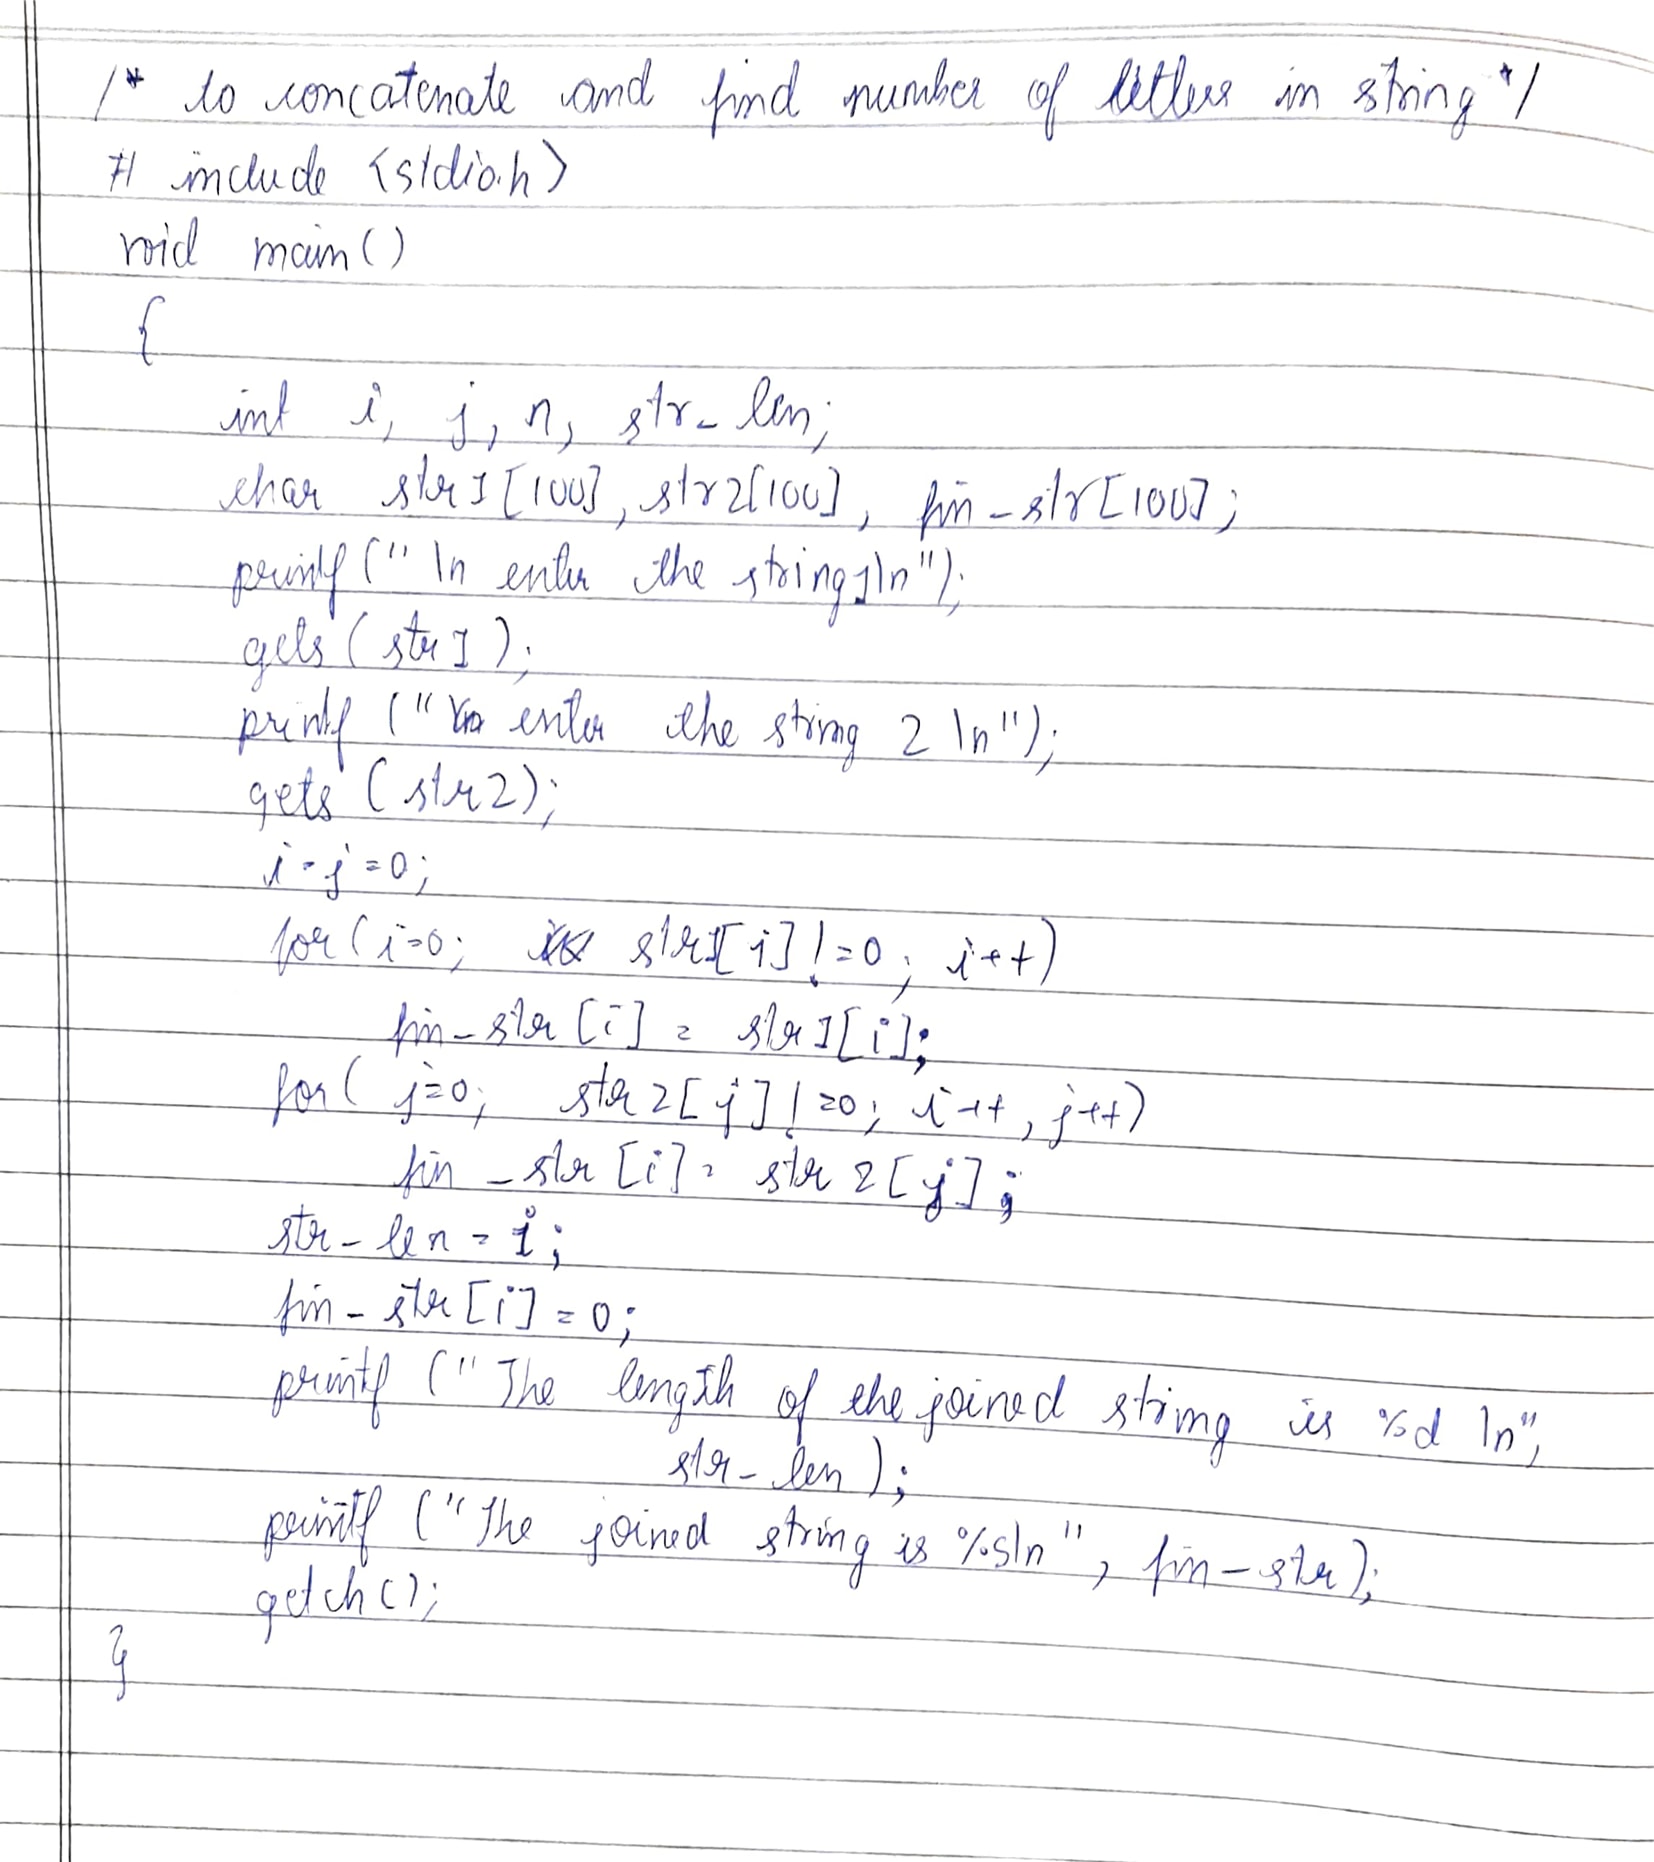 /* to concatenate and find number of letters in string */
# include <stdio.h>
void main()
{
int i, j, n, str_len;
char str1[100], str2[100], fin_str[100];
printf("\n enter the string1\n");
gets(str1);
printf("\n enter the string 2 \n");
gets(str2);
i=j=0;
for(i=0; str1[i]!=0; i++)
fin_str[i] = str1[i];
for( j=0; str2[j]!=0; i++, j++)
fin_str[i] = str2[j];
str_len = i;
fin_str[i]=0;
printf("The length of the joined string is %d \n",
str_len);
printf("The joined string is %s\n", fin_str);
getch();
}